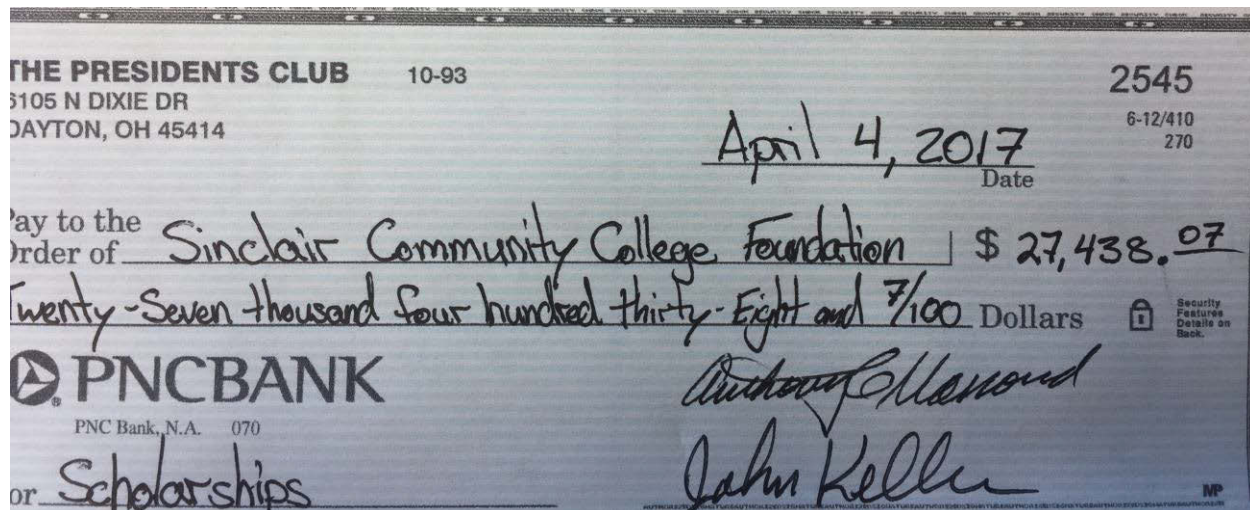 THE PRESIDENTS CLUB 10-93 2545
6105 N DIXIE DR
DAYTON, OH 45414
6-12/410
270
April 4, 2017
Date
Pay to the
Order of Sinclair Community College Foundation $ 27,438.07
Twenty-Seven thousand four hundred thirty-Eight and 7/100 Dollars
Security
Features
Details on
Back.
PNCBANK
PNC Bank, N.A. 070
or Scholarships
John Keller
MP